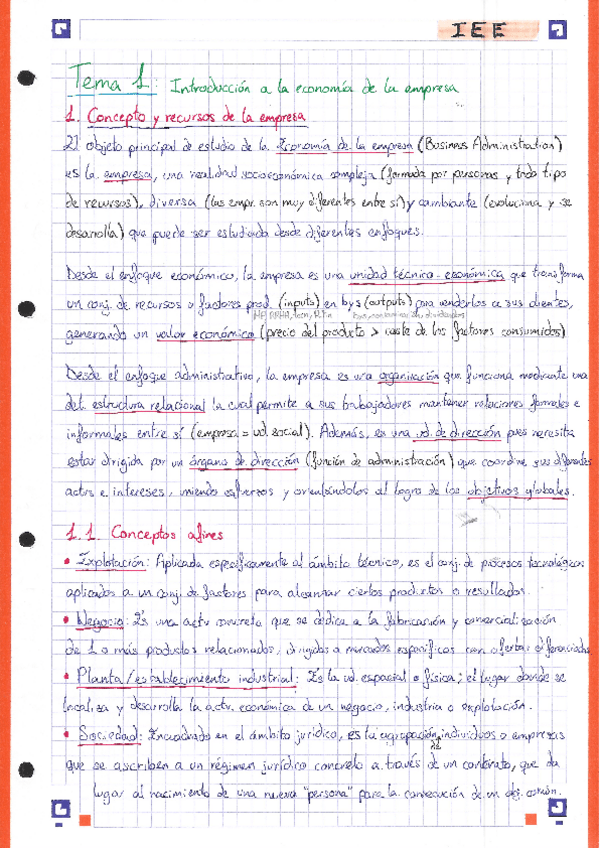 IEE
Tema 1: Introducción a la economía de la empresa
1. Concepto y recursos de la empresa
El objeto principal de estudio de la Economía de la empresa (Business Administration)
es la empresa, una realidad socioeconómica compleja (formada por personas y todo tipo
de recursos), diversa (las empr. son muy diferentes entre sí) y cambiante (evoluciona y se
desarrolla) que puede ser estudiada desde diferentes enfoques.
Desde el enfoque económico, la empresa es una unidad técnico-económica que transforma
un conj. de recursos o factores prod. (inputs) en bys (outputs) para venderlos a sus clientes,
generando un valor económico (precio del producto > coste de los factores consumidos)
Desde el enfoque administrativo, la empresa es una organización que funciona mediante una
det. estructura relacional la cual permite a sus trabajadores mantener relaciones formales e
informales entre sí (empresa = ud. social). Además, es una ud. de dirección pues necesita
estar dirigida por un órgano de dirección (función de administración) que coordine sus diferentes
actvs e intereses, uniendo esfuerzos y orientándolos al logro de los objetivos globales.
1.1. Conceptos afines
• Explotación: Aplicada específicamente al ámbito técnico, es el conj. de procesos tecnológicos
aplicados a un conj. de factores para alcanzar ciertos productos o resultados.
• Negocio: Es una actv concreta que se dedica a la fabricación y comercialización
de 1 o más productos relacionados, dirigidos a mercados específicos con ofertas diferenciadas
• Planta/establecimiento industrial: Es la ud. espacial o física; el lugar donde se
localiza y desarrolla la actv. económica de un negocio, industria o explotación.
• Sociedad: Encuadrado en el ámbito jurídico, es la agrupación de individuos o empresas
que se ascriben a un régimen jurídico concreto a través de un contrato, que da
lugar al nacimiento de una nueva "persona" para la consecución de un obj. común.